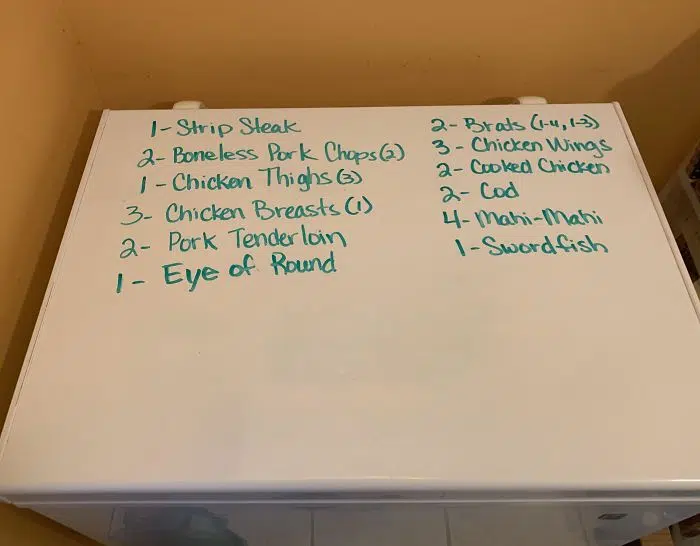 1- Strip Steak
2- Boneless Pork Chops (2)
1- Chicken Thighs (3)
3- Chicken Breasts (1)
2- Pork Tenderloin
1- Eye of Round
2- Brats (1-4, 1-3)
3- Chicken Wings
2- Cooked Chicken
2- Cod
4- Mahi-Mahi
1- Swordfish